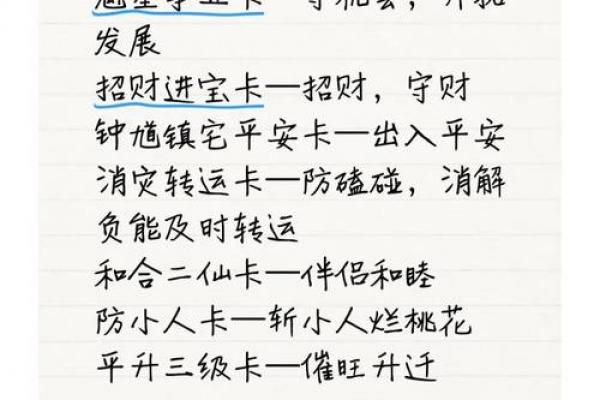 发展
招财进宝卡—招财，守财
钟馗镇宅平安卡—出入平安
消灾转运卡—防磕碰，消解
负能及时转运
和合二仙卡—伴侣和睦
防小人卡—斩小人烂桃花
平升三级卡—催旺升迁